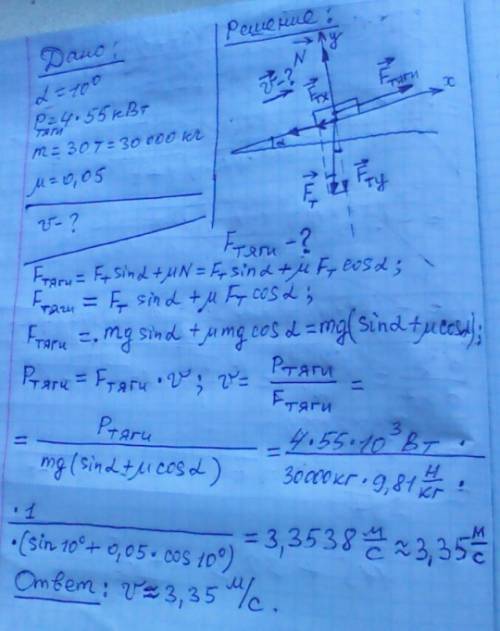 Дано:
α = 10°
Pтяги = 4·55 кВт
m = 30 т = 30 000 кг
μ = 0,05
v - ?
Решение:
N y
v - ? Fтх Fтяги x
α
Fт Fту
Fтяги - ?
Fтяги = Fт sinα + μN = Fт sinα + μ Fт cosα;
Fтяги = Fт sinα + μ Fт cosα;
Fтяги = mg sinα + μmg cosα = mg(sinα + μ cosα);
Pтяги = Fтяги · v; v = Pтяги / Fтяги =
= Pтяги / mg(sinα + μ cosα) = 4·55·10³ Вт · / 30000 кг · 9,81 Н/кг ·
·1 / ·(sin10° + 0,05·cos10°) = 3,3538 м/с ≈ 3,35 м/с
Ответ: v ≈ 3,35 м/с.